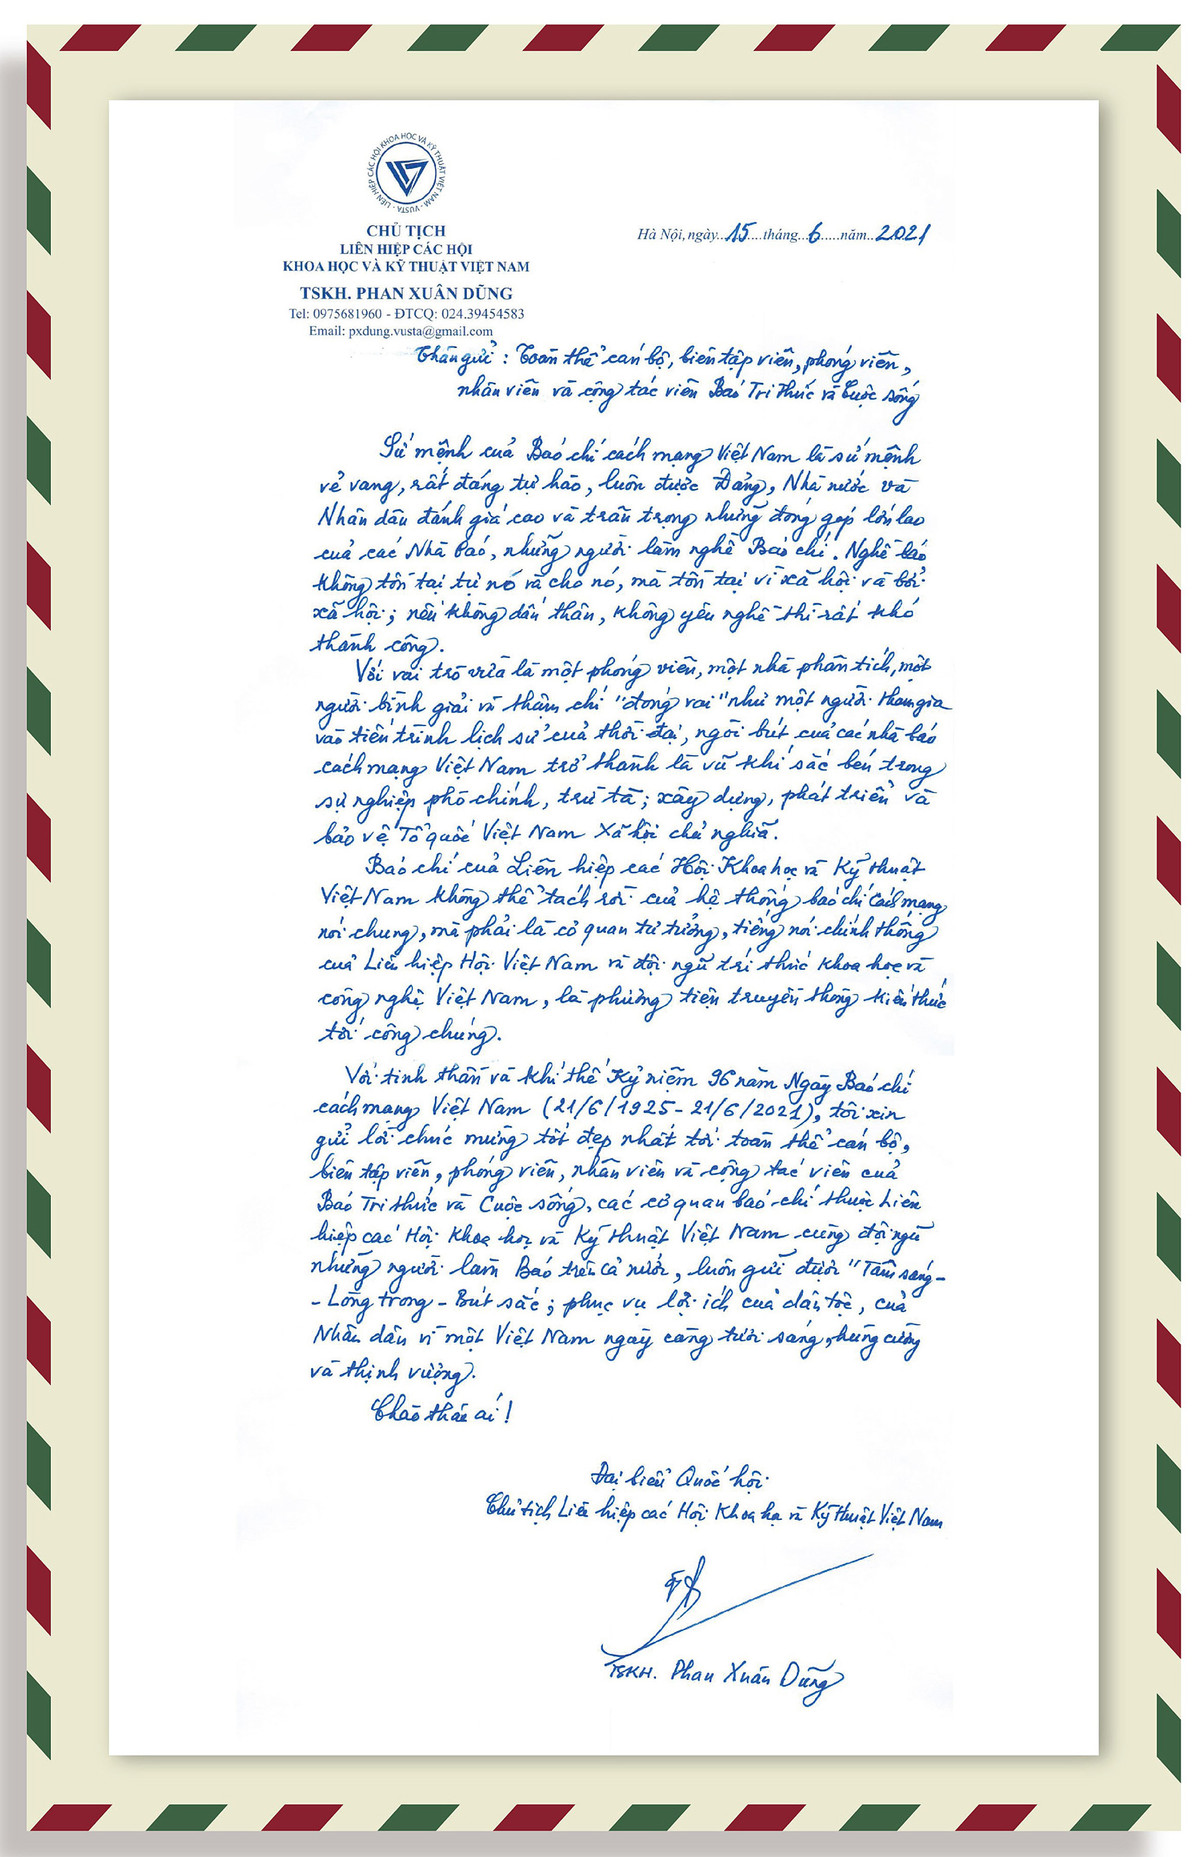 LIÊN HIỆP CÁC HỘI KHOA HỌC VÀ KỸ THUẬT VIỆT NAM - VUSTA -
CHỦ TỊCH
LIÊN HIỆP CÁC HỘI
KHOA HỌC VÀ KỸ THUẬT VIỆT NAM
TSKH. PHAN XUÂN DŨNG
Tel: 0975681960 - ĐTCQ: 024.39454583
Email: pxdung.vusta@gmail.com
Hà Nội, ngày..15....tháng...6.....năm..2021
Thân gửi: Toàn thể cán bộ, biên tập viên, phóng viên,
nhân viên và cộng tác viên Báo Tri thức và Cuộc sống
Sứ mệnh của Báo chí cách mạng Việt Nam là sứ mệnh
vẻ vang, rất đáng tự hào, luôn được Đảng, Nhà nước và
Nhân dân đánh giá cao và trân trọng những đóng góp lớn lao
của các Nhà báo, những người làm nghề Báo chí. Nghề báo
không tồn tại tự nó và cho nó, mà tồn tại vì xã hội và bởi
xã hội; nếu không dấn thân, không yêu nghề thì rất khó
thành công.
Với vai trò vừa là một phóng viên, một nhà phân tích, một
người bình giải và thậm chí "đóng vai" như một người tham gia
vào tiến trình lịch sử của thời đại, ngòi bút của các nhà báo
cách mạng Việt Nam trở thành là vũ khí sắc bén trong
sự nghiệp phò chính, trừ tà; xây dựng, phát triển và
bảo vệ Tổ quốc Việt Nam Xã hội chủ nghĩa.
Báo chí của Liên hiệp các Hội Khoa học và Kỹ thuật
Việt Nam không thể tách rời của hệ thống báo chí Cách mạng
nói chung, mà phải là cơ quan tư tưởng, tiếng nói chính thống
của Liên hiệp Hội Việt Nam và đội ngũ trí thức khoa học và
công nghệ Việt Nam, là phương tiện truyền thông kiến thức
tới công chúng.
Với tinh thần và khí thế Kỷ niệm 96 năm Ngày Báo chí
cách mạng Việt Nam (21/6/1925-21/6/2021), tôi xin
gửi lời chúc mừng tốt đẹp nhất tới toàn thể cán bộ,
biên tập viên, phóng viên, nhân viên và cộng tác viên của
Báo Tri thức và Cuộc sống, các cơ quan báo chí thuộc Liên
hiệp các Hội Khoa học và Kỹ thuật Việt Nam cùng đội ngũ
những người làm Báo trên cả nước, luôn giữ được "Tâm sáng-
- Lòng trong - Bút sắc; phục vụ lợi ích của dân tộc, của
Nhân dân vì một Việt Nam ngày càng tươi sáng, hùng cường
và thịnh vượng.
Chào thân ái!
Đại biểu Quốc hội
Chủ tịch Liên hiệp các Hội Khoa học và Kỹ thuật Việt Nam
TSKH. Phan Xuân Dũng